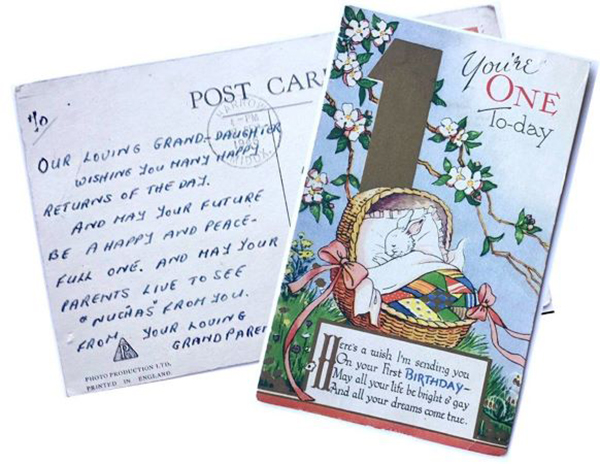 POST CAR
To
OUR LOVING GRAND-DAUGHTER
WISHING YOU MANY HAPPY
RETURNS OF THE DAY.
AND MAY YOUR FUTURE
BE A HAPPY AND PEACE-
FULL ONE. AND MAY YOUR
PARENTS LIVE TO SEE
"NUCHAS" FROM YOU.
FROM YOUR LOVING
GRANDPAREN
PHOTO PRODUCTION LTD.
PRINTED IN ENGLAND.
HARROW
6-PM
You're
ONE
To-day
Here's a wish I'm sending you
On your First BIRTHDAY—
May all your life be bright & gay
And all your dreams come true.